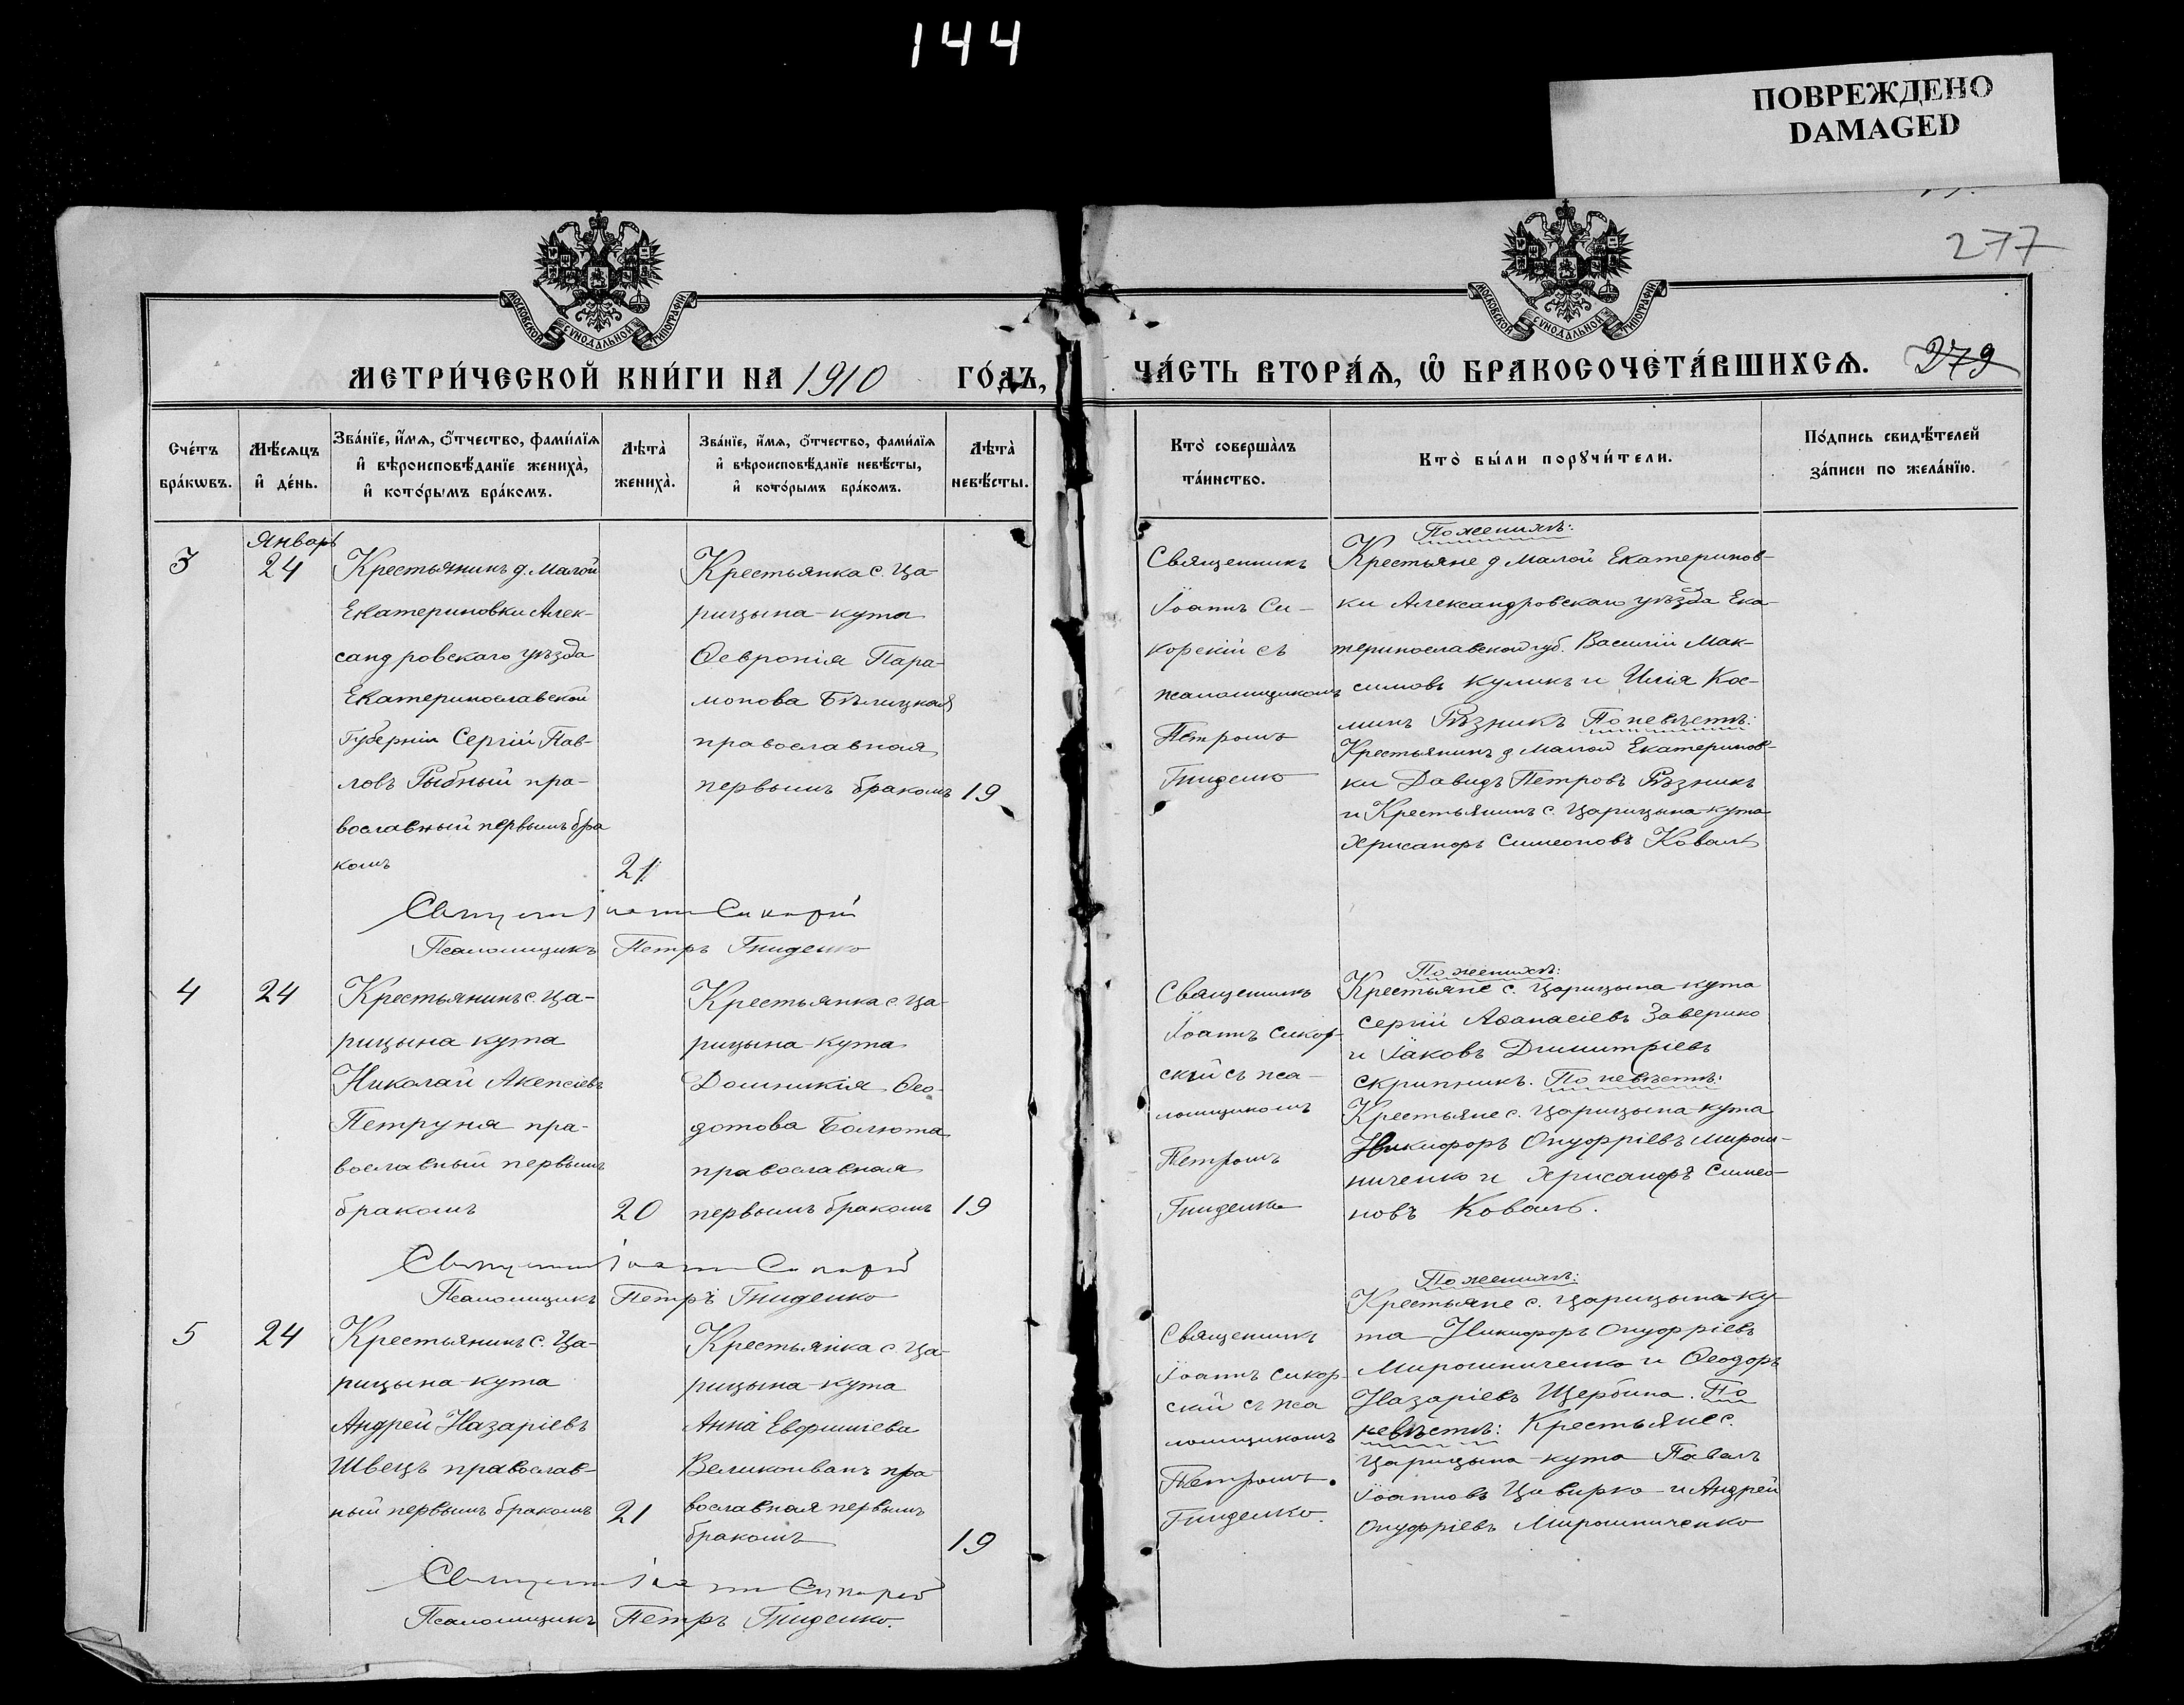 144
ПОВРЕЖДЕНО
DAMAGED
277
МОСКОВСКОЙ СѴНОДАЛЬНОЙ ТИПОГРАФІИ
МОСКОВСКОЙ СѴНОДАЛЬНОЙ ТИПОГРАФІИ
МЕТРИ́ЧЕСКОЙ КНИ́ГИ НА 1910 ГО́ДЪ,
ЧА́СТЬ ВТОРА́Ѧ, Ѽ БРАКОСОЧЕТА́ВШИХСѦ.
279
Сче́тъ
бра́кѡвъ.
Мѣ́сѧцъ
и҆ де́нь.
Зва́нїе, и҆́мѧ, ѻ҆́тчество, фамилїѧ
и҆ вѣроисповѣ́данїе жениха̀,
и҆ кото́рымъ бра́комъ.
Лѣта̀
жениха̀.
Зва́нїе, и҆́мѧ, ѻ҆́тчество, фамилїѧ
и҆ вѣроисповѣ́данїе невѣ́сты,
и҆ кото́рымъ бра́комъ.
Лѣта̀
невѣ́сты.
Кто̀ соверша́лъ
та́инство.
Кто̀ бы́ли порꙋчи́тели.
По́дпись свидѣ́телей
за́писи по жела́нїю.
3
Январь
24
Крестьянинъ д. Малой
Екатериновки Алек-
сандровскаго уѣзда
Екатеринославской
Губерніи Сергій Пав-
ловъ Рыбный пра-
вославный первымъ бра
комъ
21
Крестьянка с. Ца-
рицына-кута
Ѳевронія Пара-
монова Бѣлицкая
православная
первымъ бракомъ
19
Священникъ
Іоаннъ Си-
корскій съ
псаломщикомъ
Петромъ
Гниденко
По женихѣ:
Крестьяне д Малой Екатеринов-
ки Александровскаго уѣзда Ека-
теринославской губ. Василій Мак-
симовъ Куликъ и Илія Кос-
минъ Рѣзникъ По невѣстѣ:
Крестьянинъ д Малой Екатеринов-
ки Давидъ Петровъ Рѣзникъ
и Крестьянинъ с. Царицына-кута
Хрисанфъ Симеоновъ Коваль
Священникъ Іоаннъ Сикорскій
Псаломщикъ Петръ Гниденко
4
24
Крестьянинъ с. Ца-
рицына-кута
Николай Акепсіевъ
Петруня пра-
вославный первымъ
бракомъ
20
Крестьянка с. Ца-
рицына-кута
Домникія Ѳео-
дотова Балюта
православная
первымъ бракомъ
19
Священникъ
Іоаннъ Сикор-
скій съ пса-
ломщикомъ
Петромъ
Гниденко
По женихѣ:
Крестьяне с. Царицына-кута
Сергій Аѳанасіевъ Заверико
и Іаковъ Димитріевъ
Скрипникъ. По невѣстѣ:
Крестьяне с. Царицына-кута
Никифоръ Онуфріевъ Мирош-
ниченко и Хрисанфъ Симео-
новъ Коваль.
Священникъ Іоаннъ Сикорскій
Псаломщикъ Петръ Гниденко
5
24
Крестьянинъ с. Ца-
рицына-кута
Андрей Назаріевъ
Швецъ православ-
ный первымъ бракомъ
21
Крестьянка с. Ца-
рицына-кута
Анна Евфиміева
Великоиванъ пра-
вославная первымъ
бракомъ
19
Священникъ
Іоаннъ Сикор-
скій съ пса
ломщикомъ
Петромъ
Гниденко.
По женихѣ:
Крестьяне с. Царицына-ку-
та Никифоръ Онуфріевъ
Мирошниченко и Ѳеодоръ
Назаріевъ Щербина. По
невѣстѣ: Крестьяне с.
Царицына-кута Павелъ
Іоанновъ Цивирко и Андрей
Онуфріевъ Мирошниченко
Священникъ Іоаннъ Сикорскій
Псаломщикъ Петръ Гниденко.